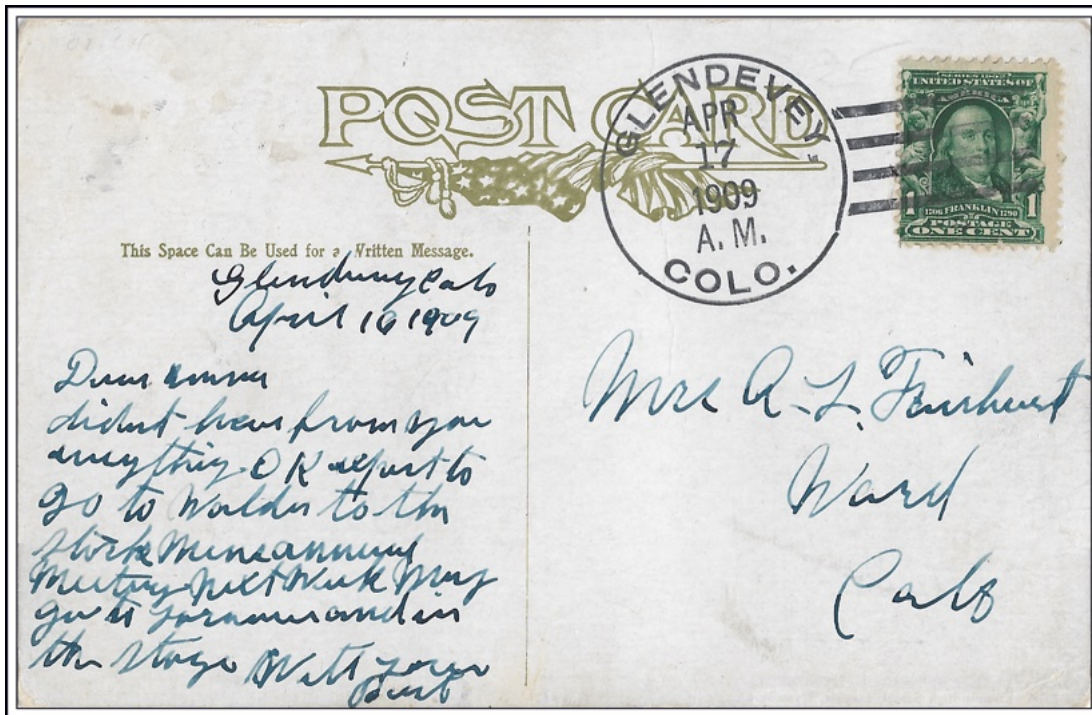 POST CARD
GLENDEVEY,
APR
17
1909
A. M.
COLO.
SERIES 1902
UNITED STATES OF
AMERICA
1 1706 FRANKLIN 1790 1
POSTAGE
ONE CENT
This Space Can Be Used for a Written Message.
Glendevey Colo
April 16 1909
Dear Emma
didnt hear from you
anything OK expect to
go to Walden to the
Stock Mens annual
Meeting next Week May
go to and in
the stage
Mrs A. L. Fairhurst
Ward
Colo